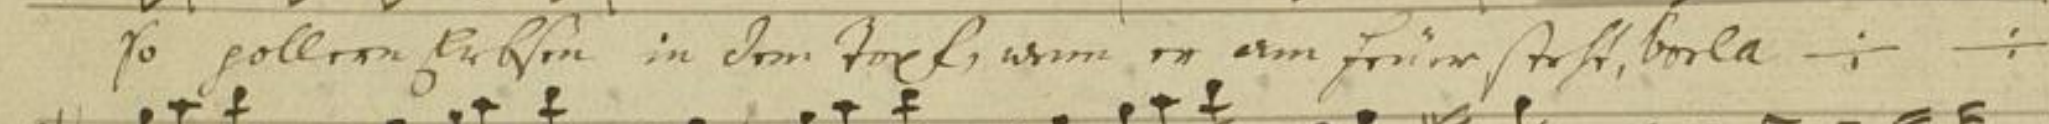 so pollern Erbsen in dem Topf, wenn er am Feüer steht, borla ÷ ÷